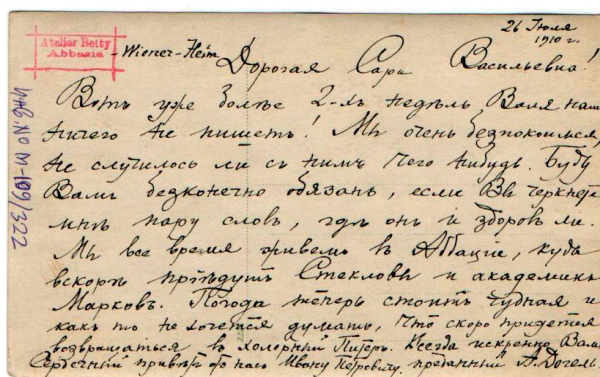 26 Іюля
1910 г.
Atelier Betty
Abbazia
- Wiener-Heim
Дорогая Сара Васильевна!
Вотъ уже болѣе 2-хъ недѣль Валя намъ
ничего не пишетъ! Мы очень безпокоимся,
не случилось ли съ нимъ чего нибудь. Буду
Вамъ безконечно обязанъ, если Вы черкнете
мнѣ пару словъ, гдѣ онъ и здоровъ ли.
Мы все время живемъ въ Аббаціи, куда
вскорѣ пріѣдутъ Стекловы и академикъ
Марковъ. Погода теперь стоитъ чудная и
какъ то не хочется думать, что скоро придется
возвращаться въ холерный Питеръ. Всегда искренно Вамъ
Сердечный привѣтъ отъ насъ Ивану Петровичу. преданный А. Догель.
Инв. № М-109/322